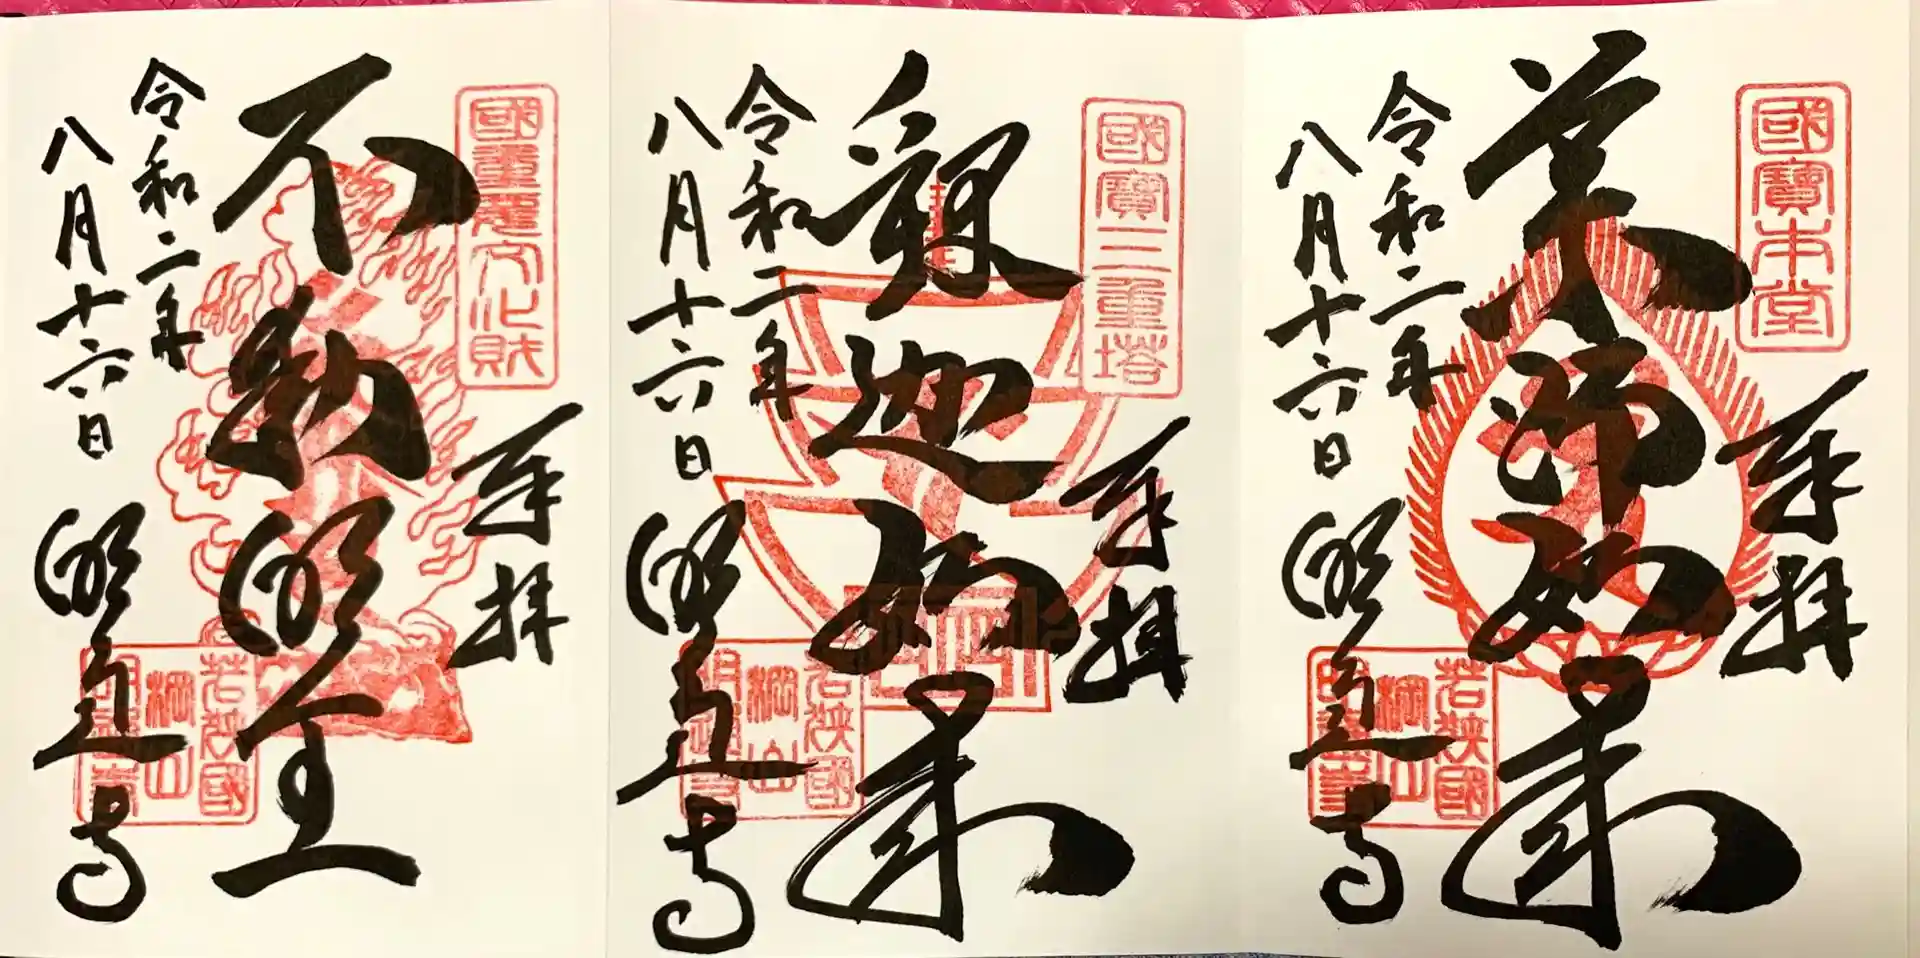 國寶本堂
奉拝
薬師如来
令和二年
八月十六日
明通寺
若狭國
棡山
明通寺
國寶三重塔
奉拝
釈迦如来
令和二年
八月十六日
明通寺
若狭國
棡山
明通寺
國重要文化財
奉拝
不動明王
令和二年
八月十六日
明通寺
若狭國
棡山
明通寺